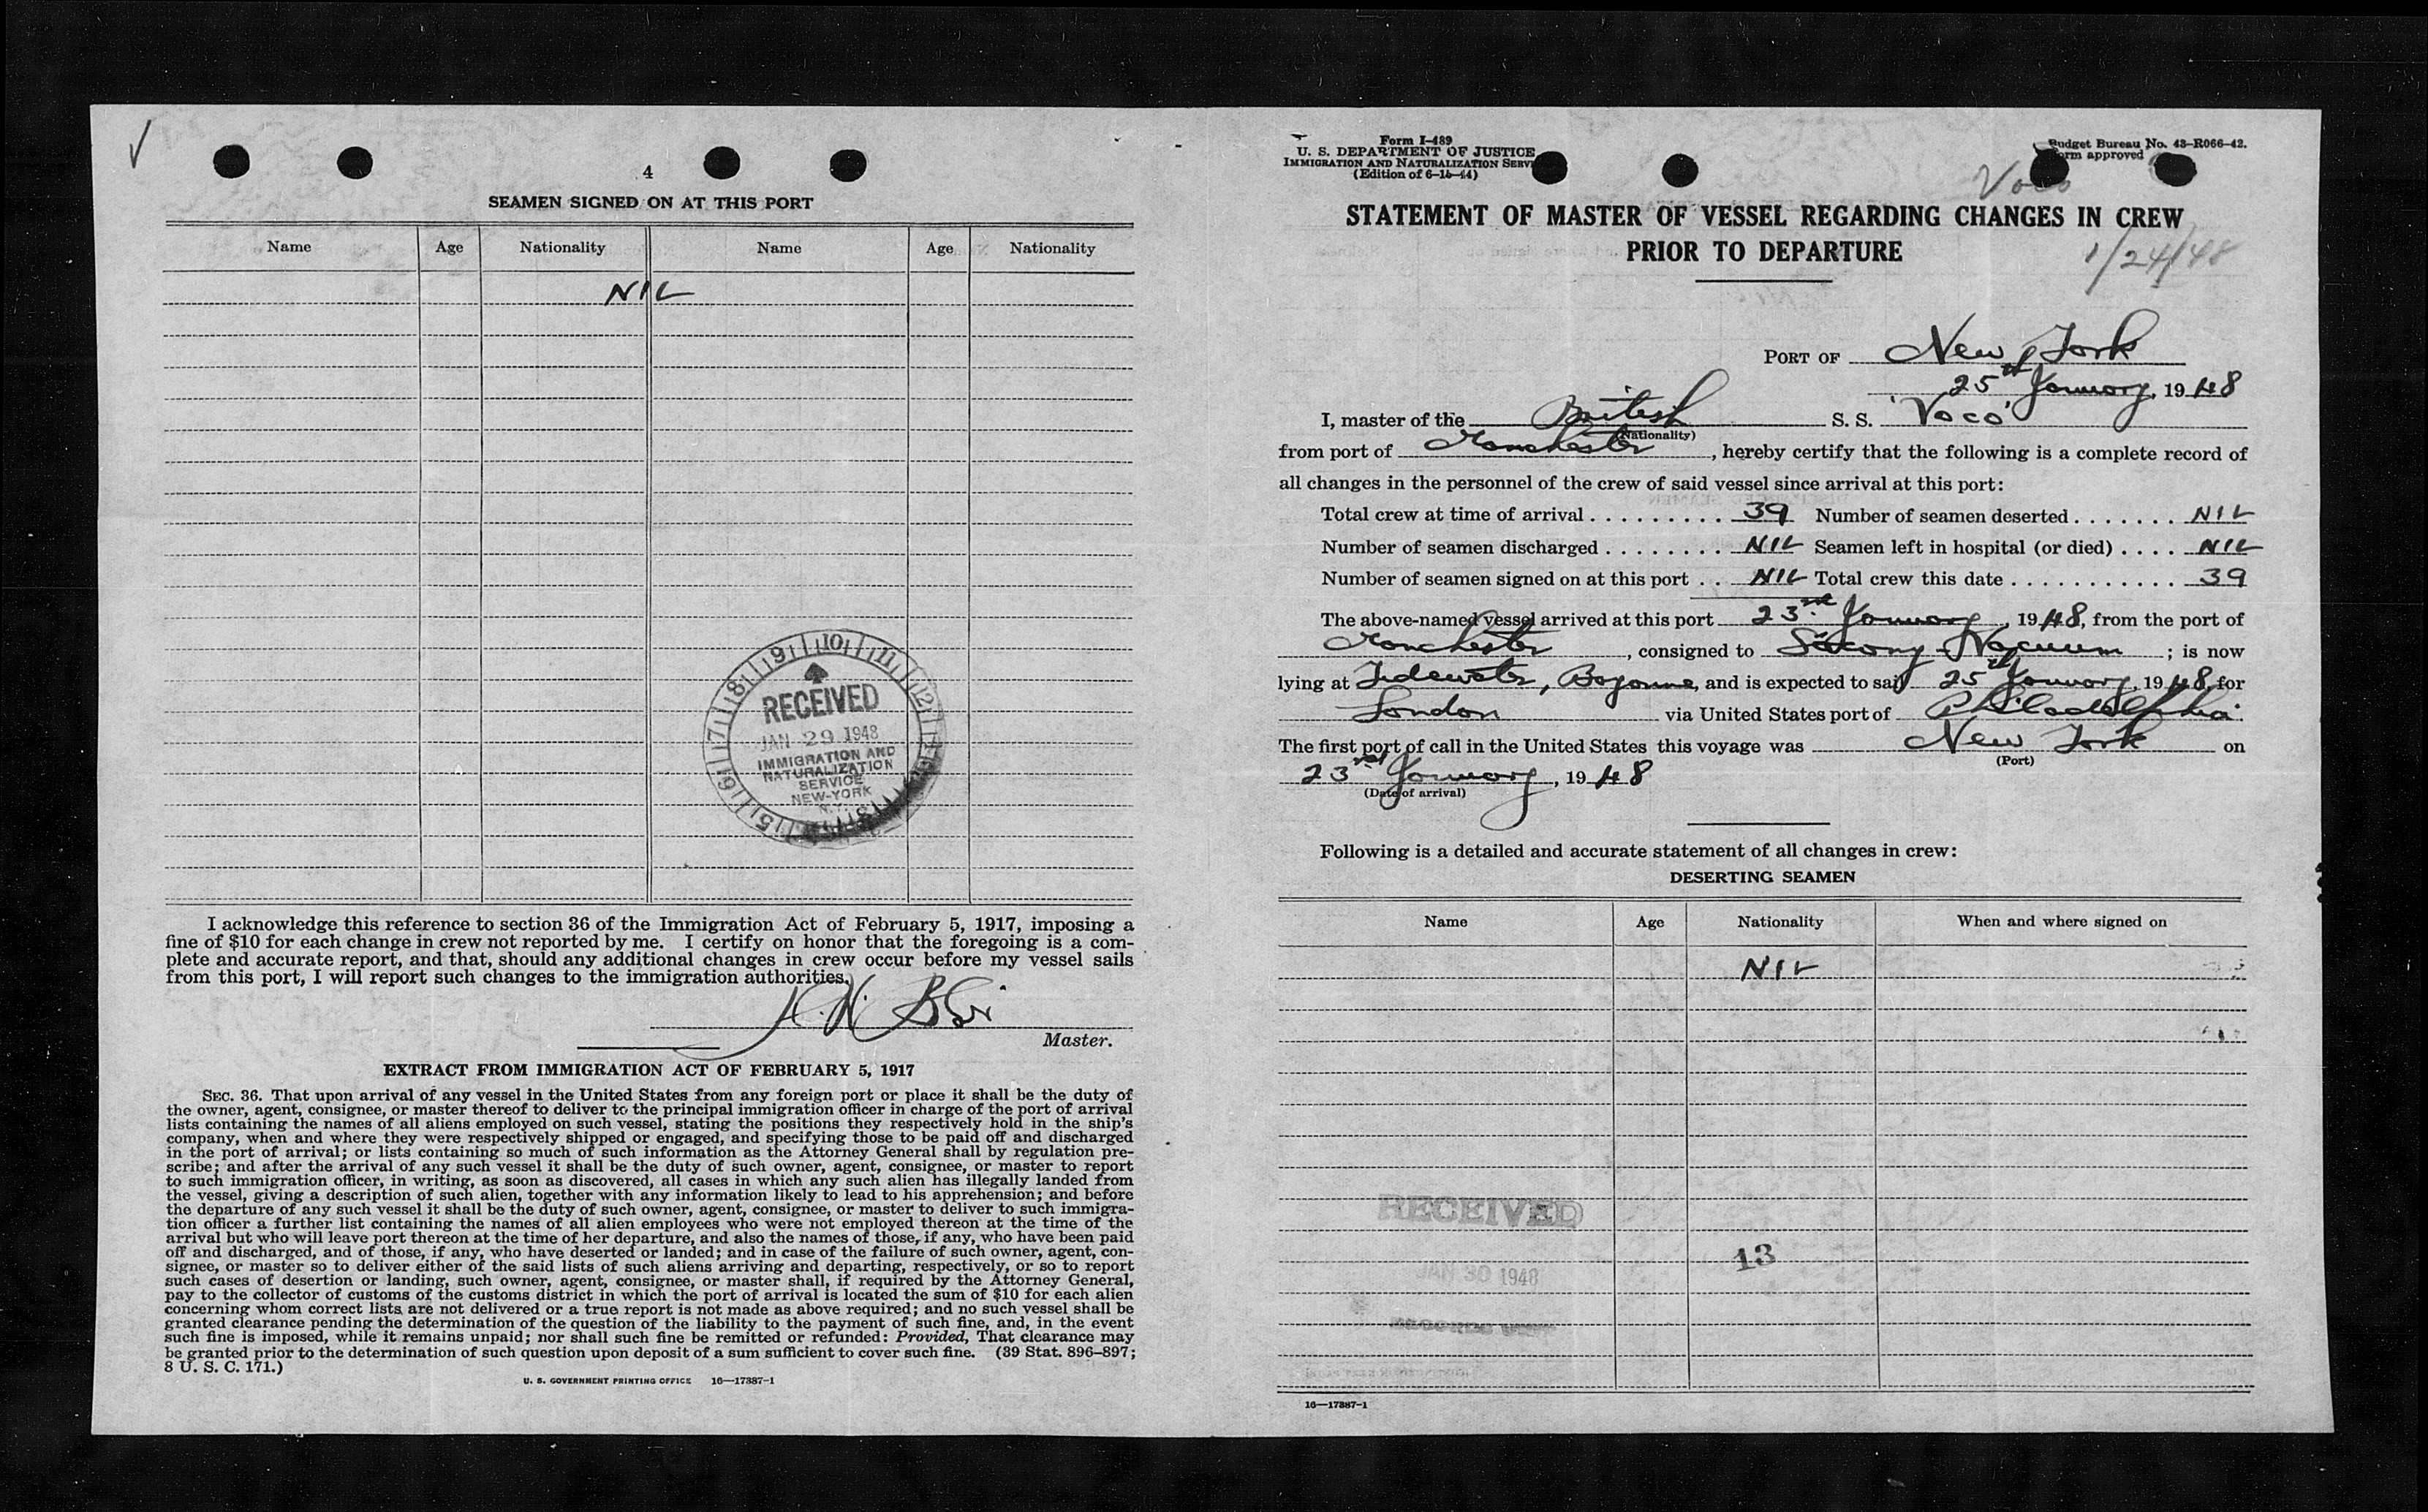 4
SEAMEN SIGNED ON AT THIS PORT
Name Age Nationality Name Age Nationality
NIL
10
9 11
8 12
7
6
5
RECEIVED
JAN 29 1948
IMMIGRATION AND
NATURALIZATION
SERVICE
NEW-YORK
N.Y.
I acknowledge this reference to section 36 of the Immigration Act of February 5, 1917, imposing a
fine of $10 for each change in crew not reported by me. I certify on honor that the foregoing is a com-
plete and accurate report, and that, should any additional changes in crew occur before my vessel sails
from this port, I will report such changes to the immigration authorities.
Master.
EXTRACT FROM IMMIGRATION ACT OF FEBRUARY 5, 1917
SEC. 36. That upon arrival of any vessel in the United States from any foreign port or place it shall be the duty of
the owner, agent, consignee, or master thereof to deliver to the principal immigration officer in charge of the port of arrival
lists containing the names of all aliens employed on such vessel, stating the positions they respectively hold in the ship's
company, when and where they were respectively shipped or engaged, and specifying those to be paid off and discharged
in the port of arrival; or lists containing so much of such information as the Attorney General shall by regulation pre-
scribe; and after the arrival of any such vessel it shall be the duty of such owner, agent, consignee, or master to report
to such immigration officer, in writing, as soon as discovered, all cases in which any such alien has illegally landed from
the vessel, giving a description of such alien, together with any information likely to lead to his apprehension; and before
the departure of any such vessel it shall be the duty of such owner, agent, consignee, or master to deliver to such immigra-
tion officer a further list containing the names of all alien employees who were not employed thereon at the time of the
arrival but who will leave port thereon at the time of her departure, and also the names of those, if any, who have been paid
off and discharged, and of those, if any, who have deserted or landed; and in case of the failure of such owner, agent, con-
signee, or master so to deliver either of the said lists of such aliens arriving and departing, respectively, or so to report
such cases of desertion or landing, such owner, agent, consignee, or master shall, if required by the Attorney General,
pay to the collector of customs of the customs district in which the port of arrival is located the sum of $10 for each alien
concerning whom correct lists are not delivered or a true report is not made as above required; and no such vessel shall be
granted clearance pending the determination of the question of the liability to the payment of such fine, and, in the event
such fine is imposed, while it remains unpaid; nor shall such fine be remitted or refunded: Provided, That clearance may
be granted prior to the determination of such question upon deposit of a sum sufficient to cover such fine. (39 Stat. 896–897;
8 U. S. C. 171.)
U. S. GOVERNMENT PRINTING OFFICE 16—17387-1
Form I-489
U. S. DEPARTMENT OF JUSTICE
IMMIGRATION AND NATURALIZATION SERVI
(Edition of 6-15-44)
Budget Bureau No. 43-R066-42.
Form approved
Voco
STATEMENT OF MASTER OF VESSEL REGARDING CHANGES IN CREW
PRIOR TO DEPARTURE
1/24/48
PORT OF New York
25th January, 1948
I, master of the British S. S. 'Voco'
(Nationality)
from port of Manchester, hereby certify that the following is a complete record of
all changes in the personnel of the crew of said vessel since arrival at this port:
Total crew at time of arrival . . . . . . . . . 39 Number of seamen deserted . . . . . . . NIL
Number of seamen discharged . . . . . . . . NIL Seamen left in hospital (or died) . . . . NIL
Number of seamen signed on at this port . . NIL Total crew this date . . . . . . . . . . . 39
The above-named vessel arrived at this port 23rd January, 1948, from the port of
Manchester, consigned to Socony Vacuum; is now
lying at Tidewater, Bayonne, and is expected to sail 25th January, 1948, for
London via United States port of Philadelphia.
The first port of call in the United States this voyage was New York on
(Port)
23rd January, 1948
(Date of arrival)
Following is a detailed and accurate statement of all changes in crew:
DESERTING SEAMEN
Name Age Nationality When and where signed on
NIL
RECEIVED
13
JAN 30 1948
16—17387-1